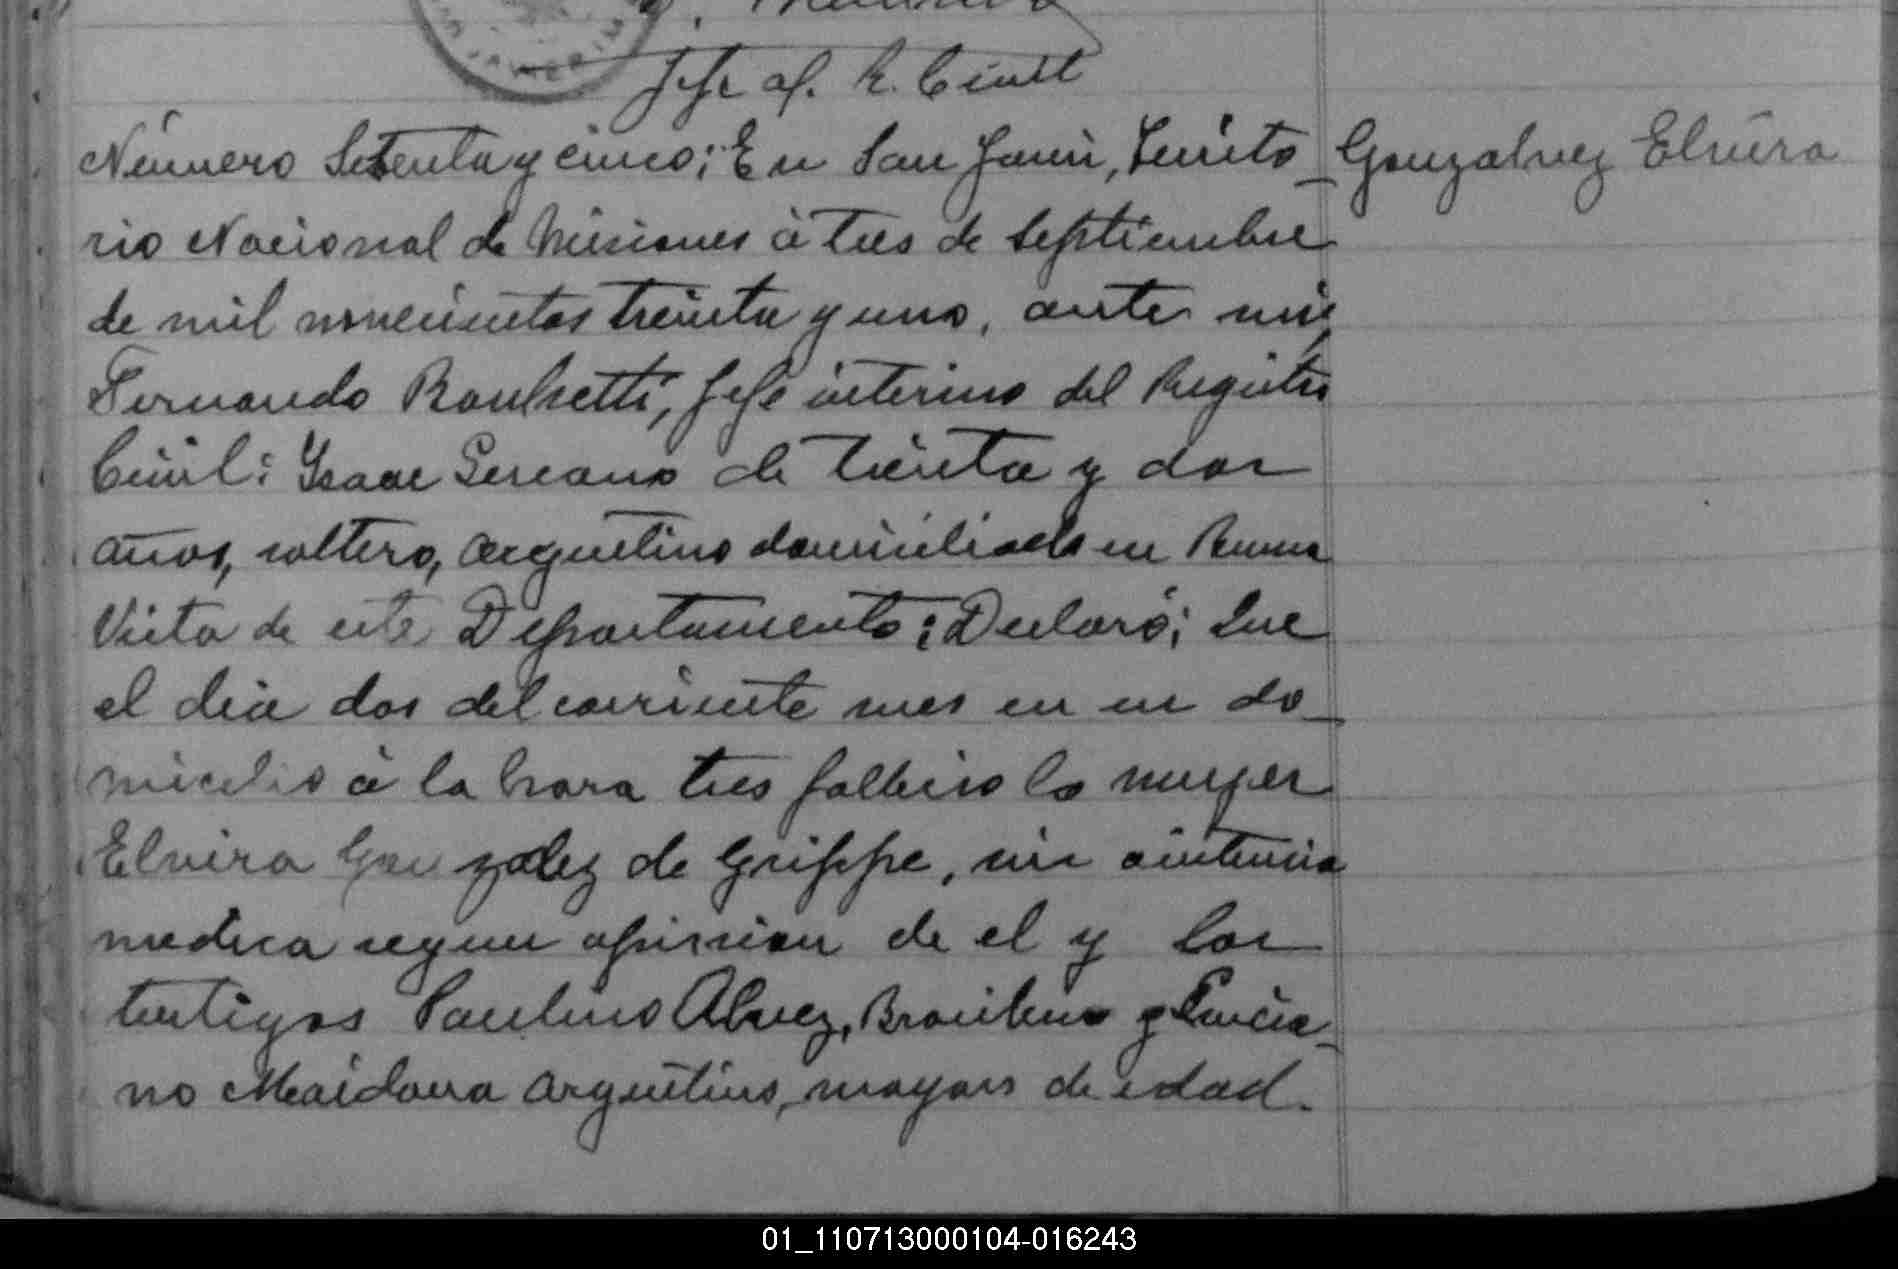 Jefe of. R. Civil
Número Setenta y cinco; En San Javier, Territo_
Gonzalvez Elvira
rio Nacional de Misiones á tres de Septiembre
de mil novecientos treinta y uno, ante mi,
Fernando, Jefe interino del Registro
Civil: Isaac de treinta y dos
años, soltero, argentino domiciliado en Buena
Vista de este Departamento: Declaró; Que
el dia dos del corriente mes en su do_
micilio á la hora tres fallecio la mujer
Elvira Gonzalez de Grippe, sin asistencia
medica segun opinion de el y los
testigos Paulino Alvez, Brasilero y
no Maidana argentino, mayores de edad.
01_110713000104-016243